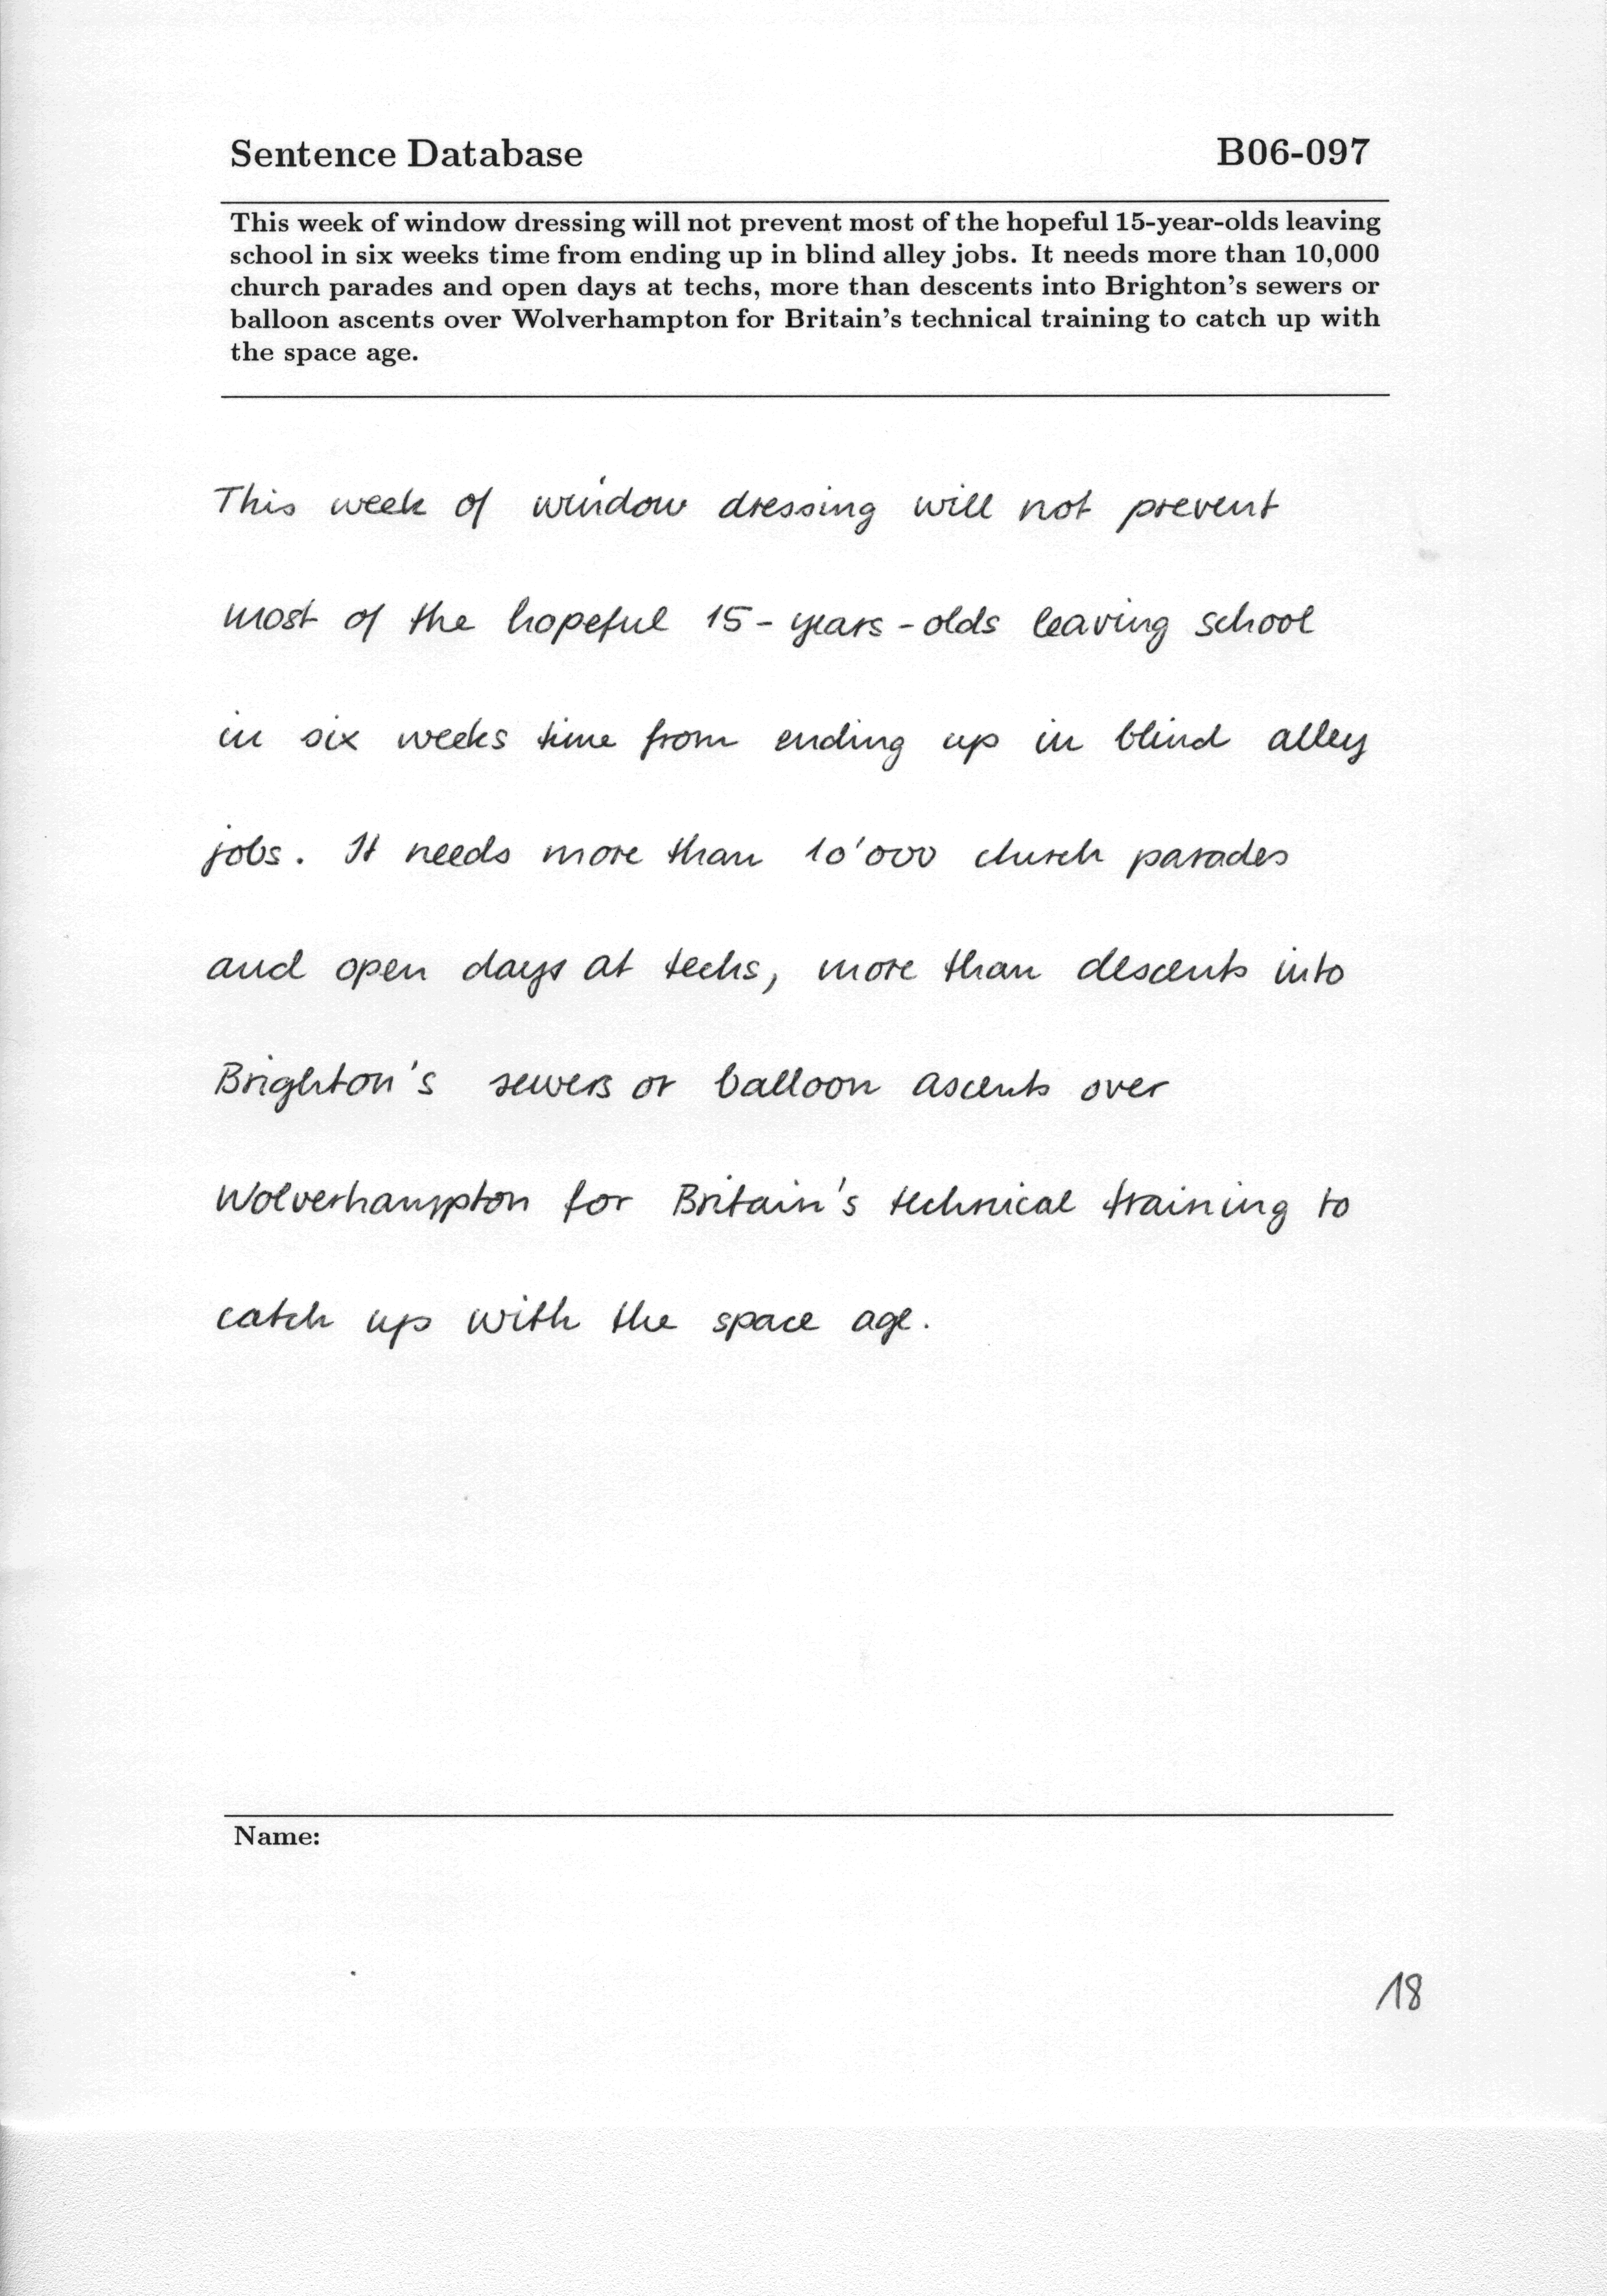 Sentence Database B06-097
This week of window dressing will not prevent most of the hopeful 15-year-olds leaving
school in six weeks time from ending up in blind alley jobs. It needs more than 10,000
church parades and open days at techs, more than descents into Brighton's sewers or
balloon ascents over Wolverhampton for Britain's technical training to catch up with
the space age.
This week of window dressing will not prevent
most of the hopeful 15-years-olds leaving school
in six weeks time from ending up in blind alley
jobs. It needs more than 10'000 church parades
and open days at techs, more than descents into
Brighton's sewers or balloon ascents over
Wolverhampton for Britain's technical training to
catch up with the space age.
Name:
18